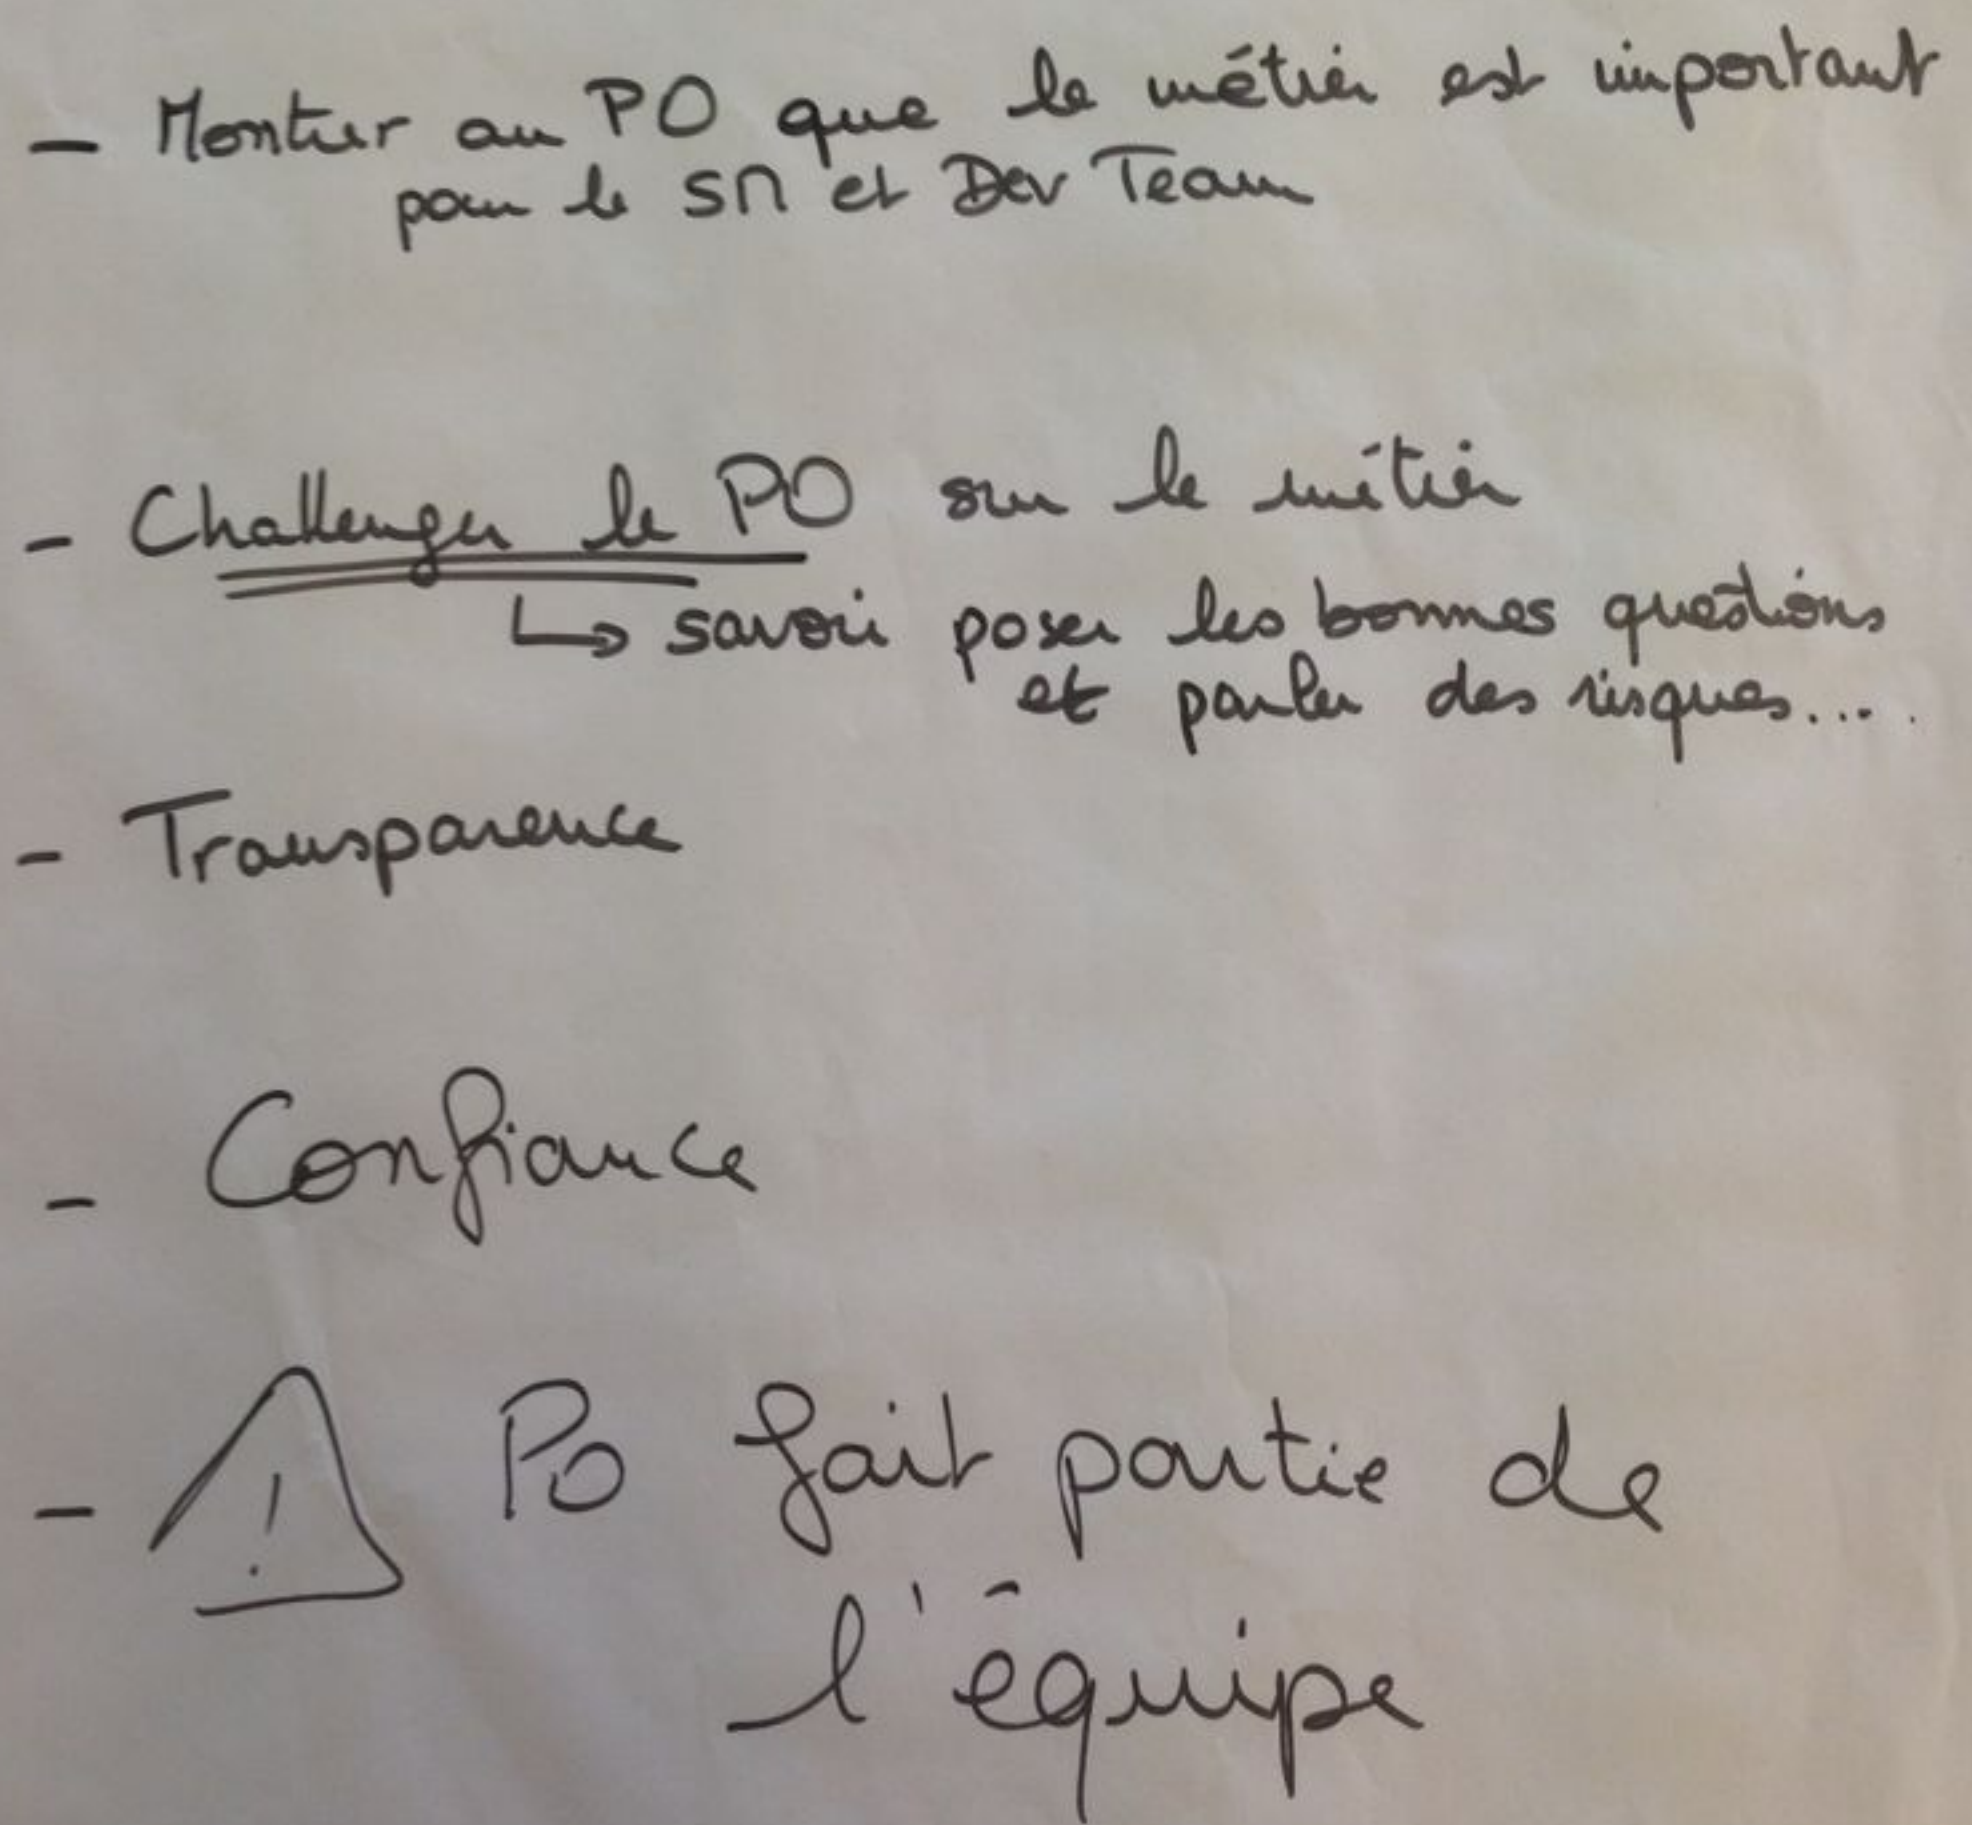 - Montrer au PO que le métier est important
pour le SM et Dev Team
- Challenger le PO sur le métier
↳ savoir poser les bonnes questions
et parler des risques...
- Transparence
- Confiance
- ⚠ PO fait partie de
l'équipe